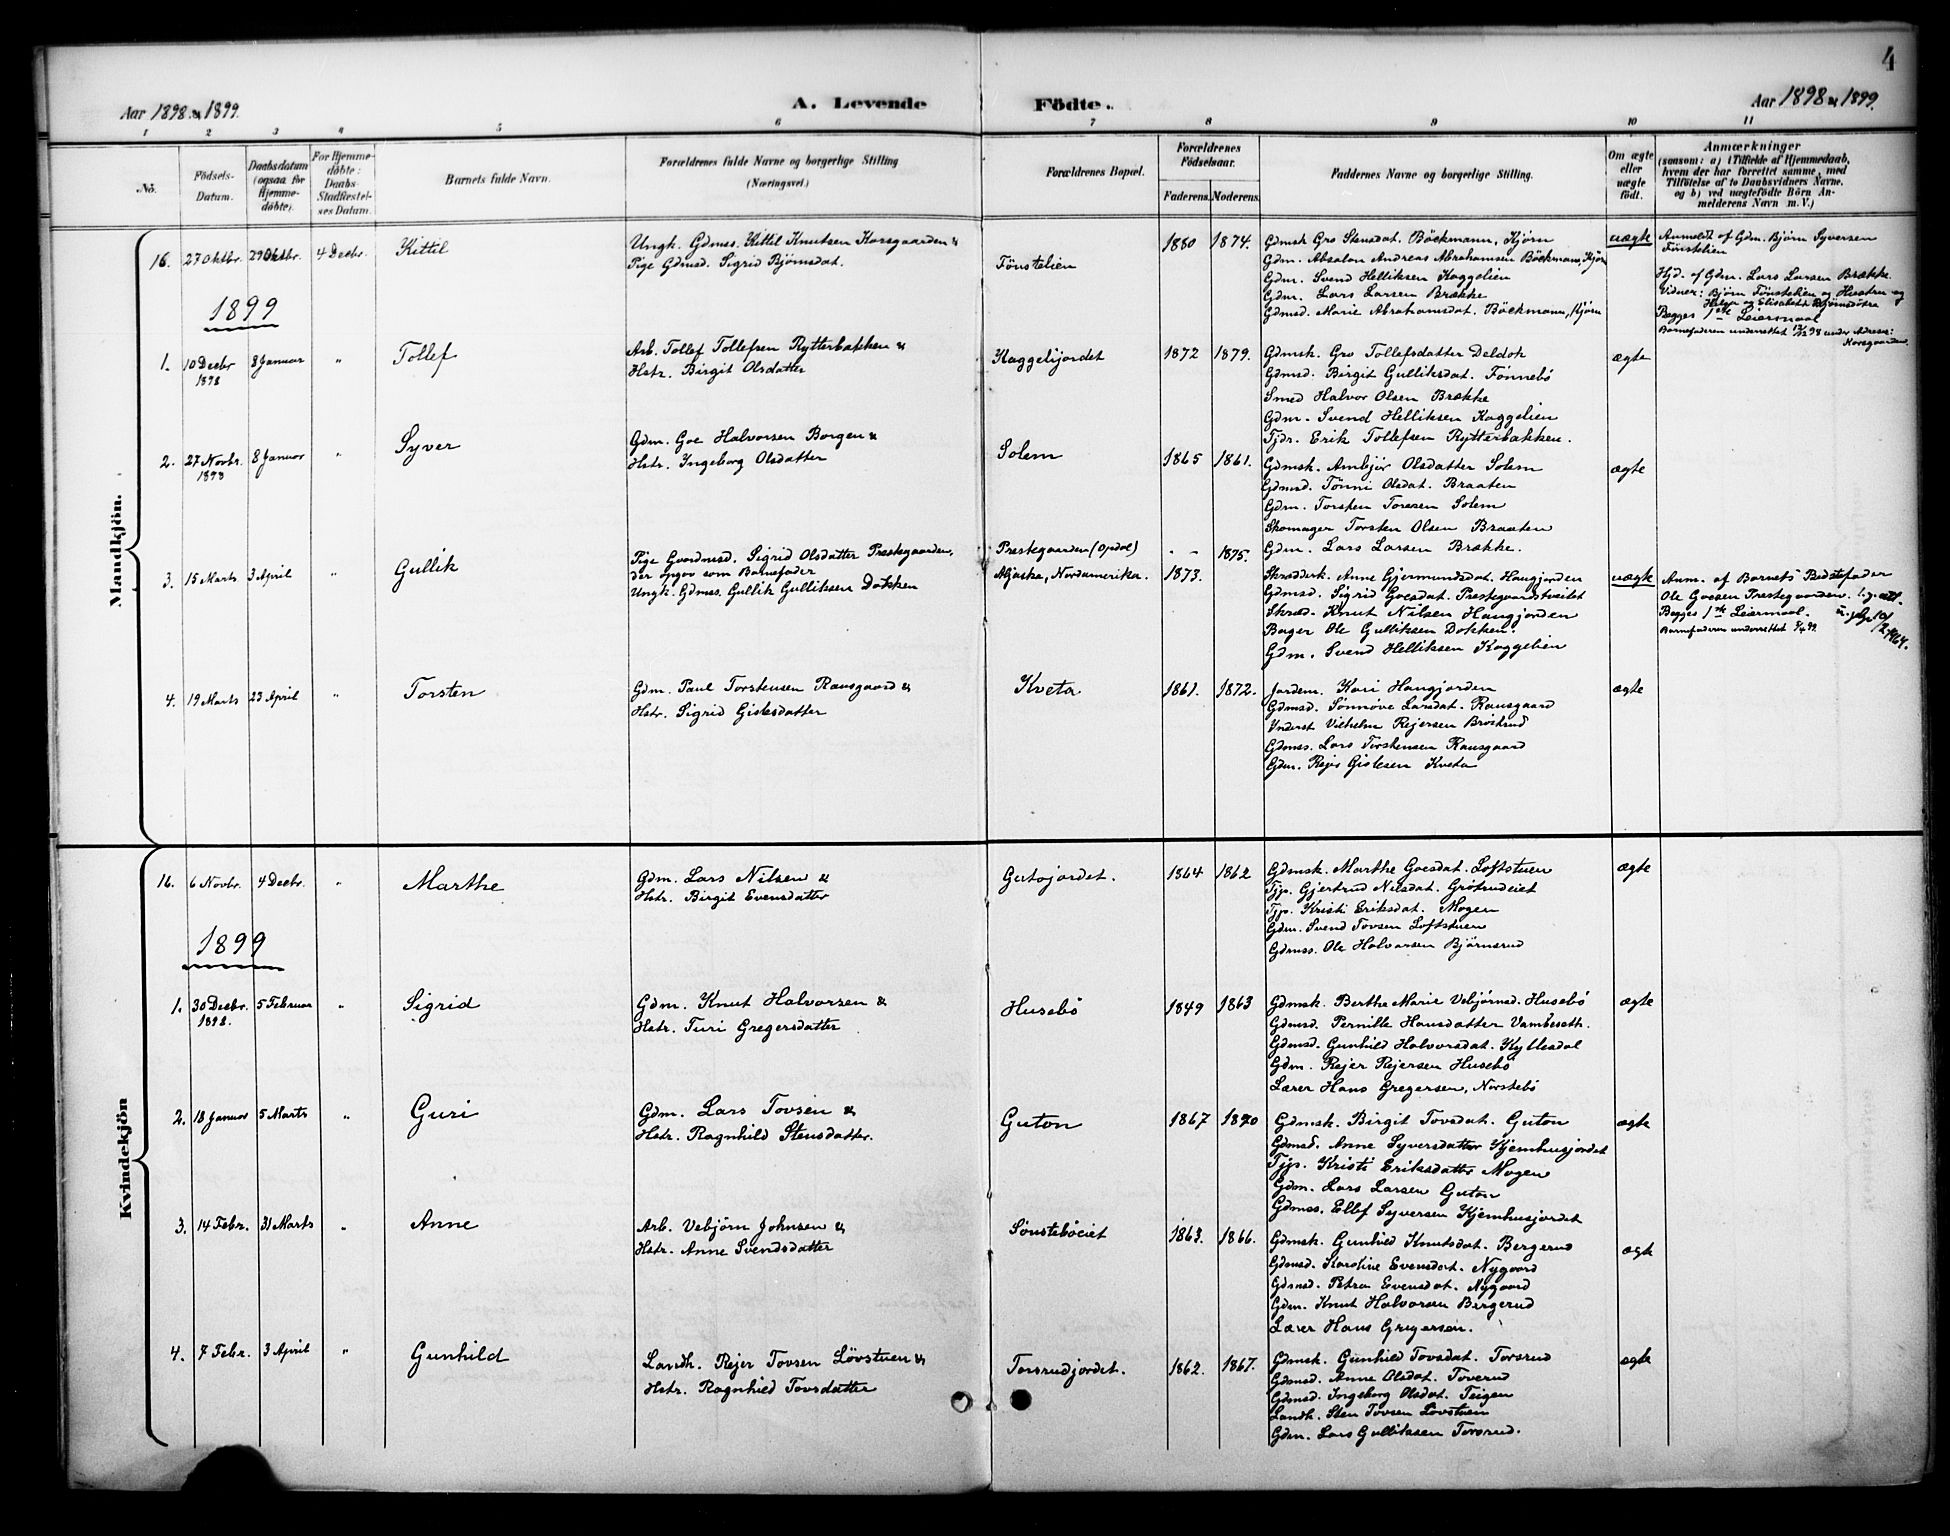 4
Aar 1898 og 1899.
A. Levende Födte.
Aar 1898 og 1899.
1 2 3 4 5 6 7 8 9 10 11
No.
Födsels-Datum.
Daabsdatum (ogsaa for Hjemme-döbte).
For Hjemme-döbte: Daabs-Stadfæstel-ses Datum.
Barnets fulde Navn.
Forældrenes fulde Navne og borgerlige Stilling
(Næringsvei.)
Forældrenes Bopæl.
Forældrenes Födselsaar.
Faderens. Moderens.
Faddernes Navne og borgerlige Stilling.
Om ægte eller uægte födt.
Anmærkninger
(saasom: a) i Tilfælde af Hjemmedaab, hvem der har forrettet samme, med Tilföielse af to Daabsvidners Navne, og b) ved uægtefödte Börn An-melderens Navn m. V.)
Mandkjön.
16. 27 Oktbr. 29 Oktbr. 4 Decbr. Kittil
Ungk. Gdmss. Kittil Knutsen Korsgaarden &
Pige Gdmsd. Sigrid Bjørnsdat.
Fönstelien
1880 1874.
Gdmsk Gro Stensdat. Böckmann, Kjörn
Gdm. Absalon Andreas Abrahamsen Böckmann, Kjörn
Gdm. Svend Helliksen Kaggelien
Gdm. Lars Larsen Brække
Gdmsd. Marie Abrahamsdat. Böckmann, Kjörn
uægte
Anmeldt af Gdm. Björn Syversen
Fönstelien
Hjd. af Gdm. Lars Larsen Brække.
Vidner: Björn Fönstelien og Hustru og
Helga og Elisabeth Bjørnsdøtre
Begges 1ste Leiermaal
Barnefaderen underrettet 13/12 98 under Adresse:
Korsgaarden.
1899
1. 10 Decbr 1898 8 Januar " Tollef
Arb. Tollef Tollefsen Rytterbakken &
Hstr. Birgit Olsdatter
Kaggelijordet
1872 1879.
Gdmsk. Gro Tollefsdatter Deldok
Gdmsd. Birgit Gulliksdat. Fönnebö
Smed Halvor Olsen Brække
Gdm. Svend Helliksen Kaggelien
Tjdr. Erik Tollefsen Rytterbakken.
ægte
2. 27 Novbr. 1898 8 Januar " Syver
Gdm. Goe Halvorsen Borgen &
Hstr. Ingeborg Olsdatter
Solem
1865 1861.
Gdmsk. Ambjör Olsdatter Solem
Gdmsd. Tönni Olsdat. Braaten
Gdm. Torsten Toresen Solem
Skomager Torsten Olsen Braaten
Gdm. Lars Larsen Brække.
ægte
3. 15 Marts 3 April " Gullik
Pige Gaardmsd. Sigrid Olsdatter Prestegaarden,
der opgav som Barnefader
Ungk. Gdmss. Gullik Gulliksen Dokken
Prestegaarden (Opdal)
Aljaska, Nordamerika.
- - 1875.
1873.
Skrædderk. Anne Gjermundsdat. Haugjorden
Gdmsd. Sigrid Goesdat. Prestegaardstveitet
Skræd. Knut Nilsen Haugjorden
Bager Ole Gulliksen Dokken.
Gdm. Svend Helliksen Kaggelien
uægte
Anm. af Barnets Bedstefader
Ole Goesen Prestegaarden.
Begges 1ste Leiermaal.
Barnefaderen underrettet 5/4 99.
4. 19 Marts 23 April " Torsten
Gdm. Paul Torstensen Rausgaard &
Hstr. Sigrid Gislesdatter
Kveta
1861. 1872.
Jordem. Kari Haugjorden
Gdmsd. Sönnöve Larsdat. Rausgaard
Inderst Vilhelm Rejersen Bröstrud
Gdmss. Lars Torstensen Rausgaard
Gdm. Rejer Gislesen Kveta
ægte
Kvindekjön
16. 6 Novbr. 4 Decbr. " Marthe
Gdm. Lars Nilsen &
Hstr. Birgit Evensdatter
Gutojordet.
1864 1862
Gdmsk. Marthe Goesdat. Loftstuen
Tjp. Gjertrud Nilsdat. Grötrudeiet
Tjp. Kristi Eriksdat. Mogen
Gdm. Svend Tovsen Loftstuen
Gdmss. Ole Halvorsen Björnsrud
ægte
1899
1. 30 Decbr. 1898. 5 Februar " Sigrid
Gdm. Knut Halvorsen &
Hstr. Turi Gregersdatter
Husebö
1849 1863
Gdmsk. Berthe Marie Vebjörnsd. Husebö
Gdmsd. Pernille Hansdatter Vambeseth.
Gdmsd. Gunhild Halvorsdat. Kyllesdal
Gdm. Rejer Rejersen Husebö
Lærer Hans Gregersen, Norstebö
ægte
2. 18 Januar 5 Marts " Guri
Gdm. Lars Tovsen &
Hstr. Ragnhild Stensdatter.
Guton
1867 1870
Gdmsk. Birgit Tovsdat. Guton
Gdmsd. Anne Syversdatter Kjemhusjordet
Tjp. Kristi Eriksdatter Mogen
Gdm. Lars Larsen Guton
Gdmss. Ellef Syversen Kjemhusjordet
ægte
3. 14 Febr. 31 Marts " Anne
Arb. Vebjörn Johnsen &
Hstr. Anne Svendsdatter
Sönsteböeiet
1863. 1866.
Gdmsk. Gunhild Knutsdat. Bergerud
Gdmsd. Karoline Evensdat. Nygaard
Gdmsd. Petra Evensdat. Nygaard
Gdm. Knut Halvorsen Bergerud
Lærer Hans Gregersen.
ægte
4. 7 Febr. 3 April " Gunhild
Landh. Rejer Tovsen Lövstuen &
Hstr. Ragnhild Tovsdatter
Torsrudjordet.
1862. 1867.
Gdmsk. Gunhild Tovsdat. Torsrud
Gdmsd. Anne Olsdat. Toverud
Gdmsd. Ingeborg Olsdat. Teigen
Landh. Sten Tovsen Lövstuen
Gdm. Lars Gulliksen Torsrud.
ægte